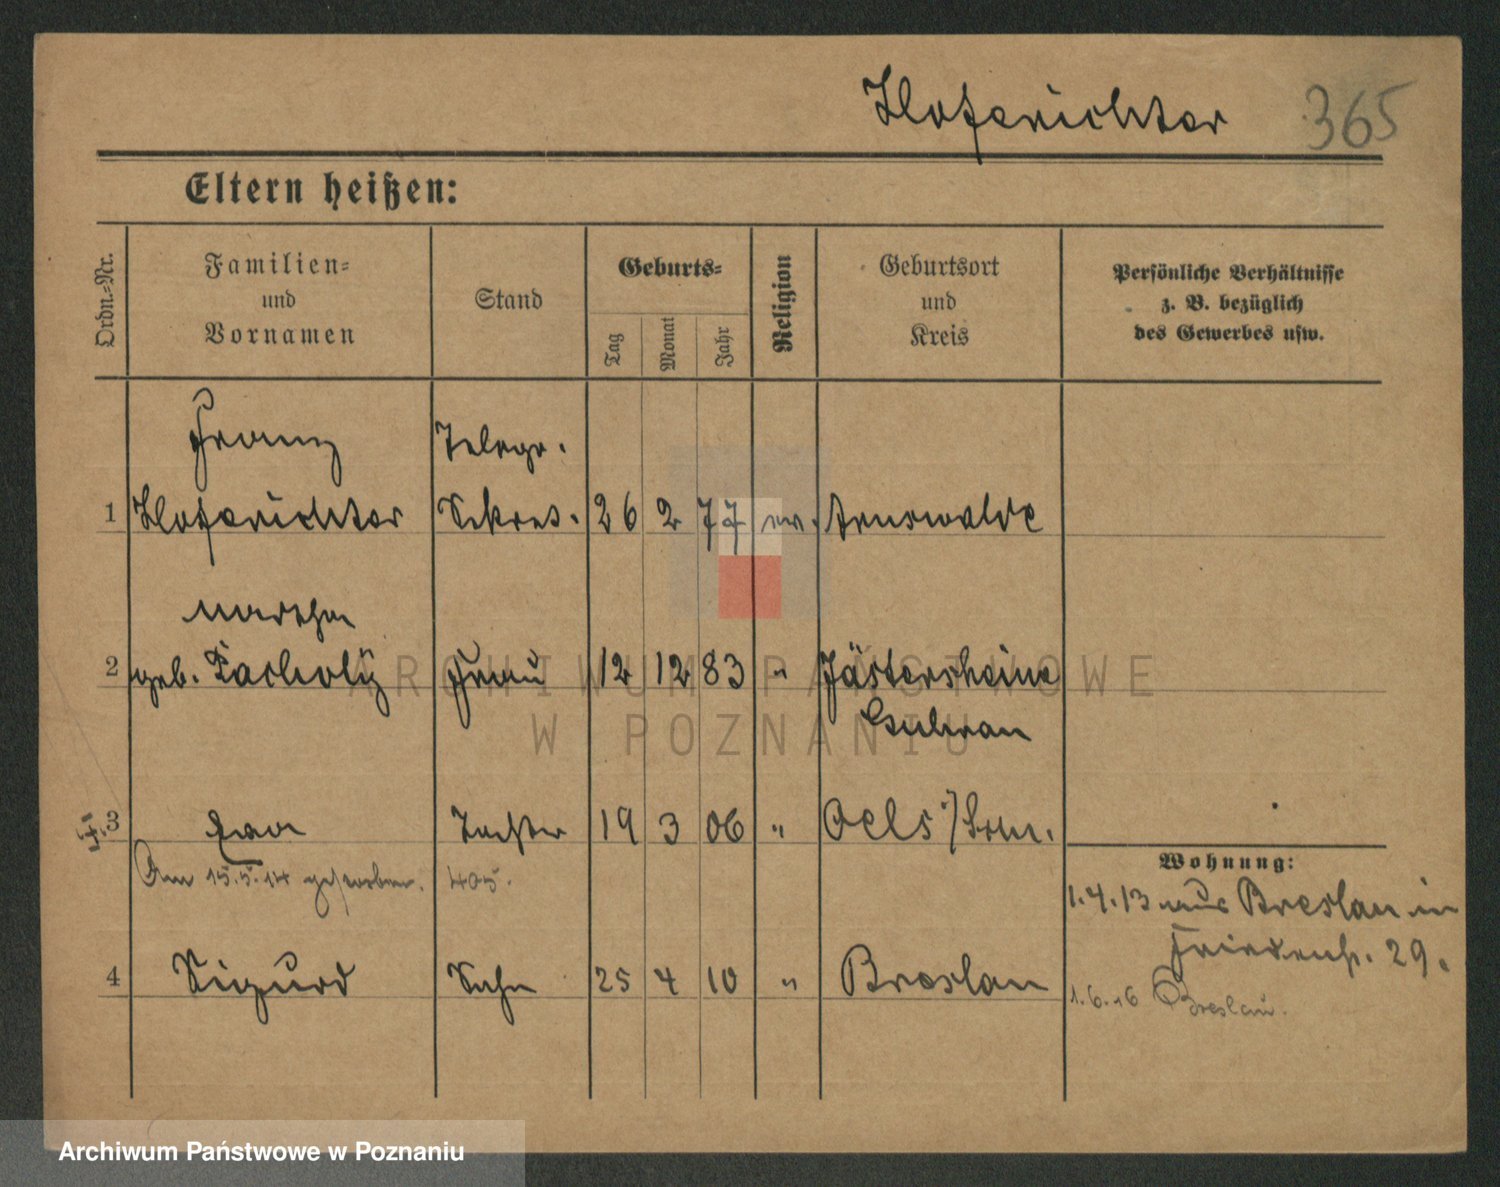 Hoferichter 365
Eltern heißen:
Ordn.-Nr.
Familien-
und
Vornamen
Stand
Geburts-
Tag
Monat
Jahr
Religion
Geburtsort
und
Kreis
Persönliche Verhältnisse
z. B. bezüglich
des Gewerbes usw.
Franz Telegr.
1 Hoferichter Sekret. 26 2 77 ev. Arnswalde
Martha
2 geb. Frau 12 12 83 " Jästersheim
Guhrau
3 Eva Tochter 19 3 06 " Oels
Am 15.5.14 gestorben. 405.
Wohnung:
1.4.13 aus Breslau in
Friedenstr. 29.
4 Sigurd Sohn 25 4 10 " Breslau
1.6.16 Breslau.
ARCHIWUM PAŃSTWOWE
W POZNANIU
Archiwum Państwowe w Poznaniu